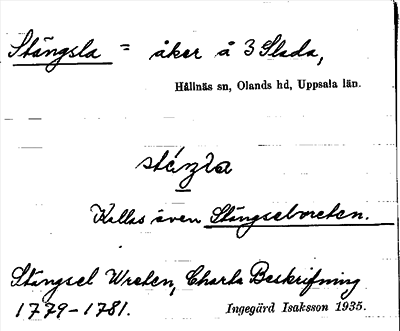 Stängsla = åker å 3 Slada,
Hållnäs sn, Olands hd, Uppsala län.
stä́ŋla
Kallas även Stängselvreten.
Stängsel Wreten, Charta Beskrifning
1779-1781.
Ingegärd Isaksson 1935.